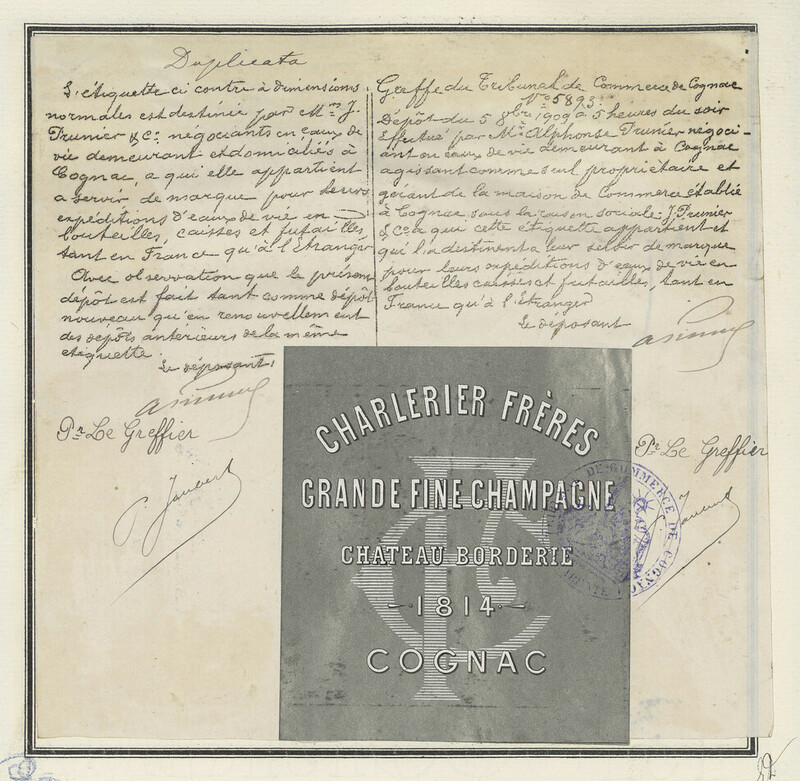 Duplicata
L'étiquette ci contre à dimensions
normales est destinée par Mrs J.
Prunier & Co négociants en eaux de
vie demeurant et domiciliés à
Cognac, a qui elle appartient
a servir de marque pour leurs
expéditions d'eaux de vie en
bouteilles, caisses et futailles
tant en France qu'à l'étranger
Avec observation que le présent
dépôt est fait tant comme dépôt
nouveau qu'en renouvellement
des dépôts antérieurs de la même
etiquette.
Le déposant
Pr Le Greffier
Greffe du Tribunal de Commerce de Cognac
No 5893.
Dépôt du 5 8bre 1909 à 5 heures du soir
Effectué par Mr Alphonse Prunier négoci-
ant en eaux de vie demeurant à Cognac
agissant comme seul propriétaire et
gérant de la maison de Commerce établie
à Cognac sous la raison sociale J. Prunier
& Co a qui cette étiquette appartient et
qui l'a destinent a leur servir de marque
pour leurs expéditions d'eaux de vie en
bouteilles caisses et futailles, tant en
France qu'à l'étranger
Le déposant
Pr Le Greffier
CHARLERIER FRÈRES
GRANDE FINE CHAMPAGNE
CHATEAU BORDERIE
1814
COGNAC
DE COMMERCE DE COGNAC